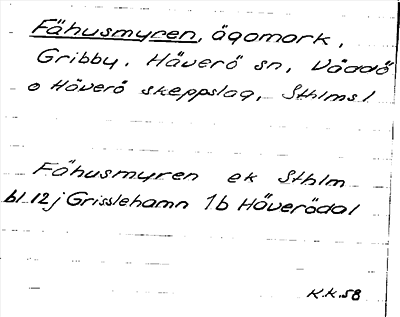 Fähusmyren, ägomark,
Gribby, Häverö sn, Väddö
o Häverö skeppslag, Sthlms l
Fähusmyren ek Sthlm
bl 12 j Grisslehamn 1b Häverödal
K.K.58